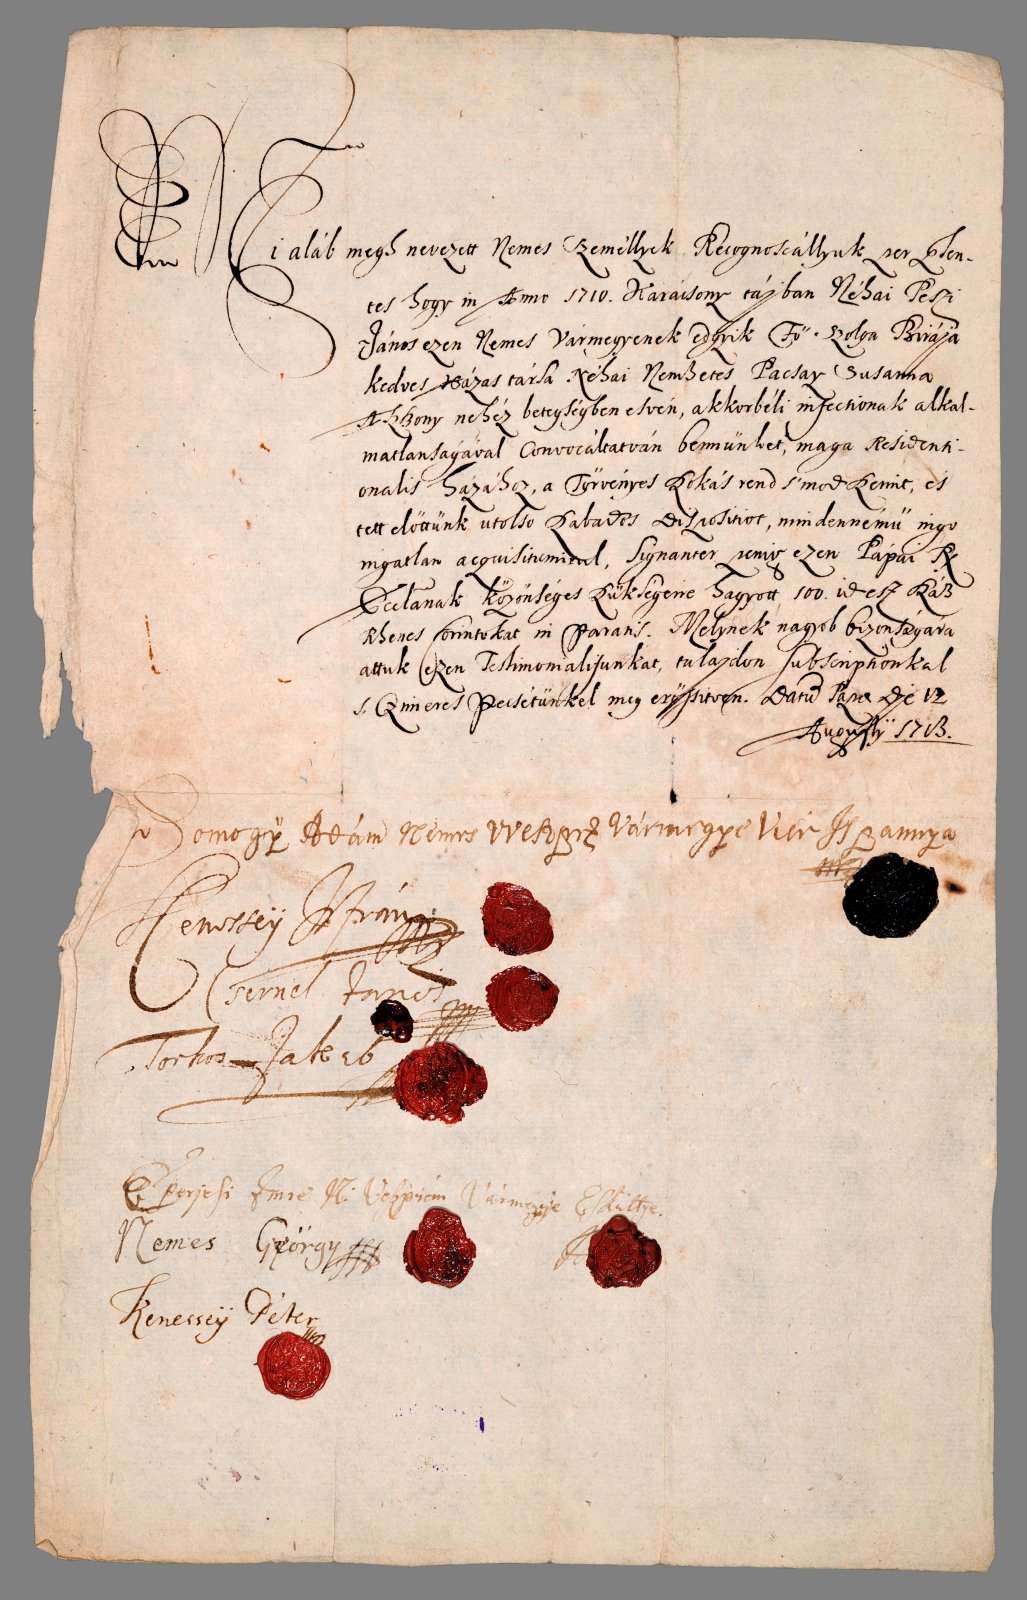 Mi aláb megh nevezett Nemes Személlyek Recognoscállyuk per p̱sen-
tes hogy in Anno 1710. Karácsony tájban Néhai Peszi
János ezen Nemes Vármegyenek edgyik Fö-Szolga Birája
kedves Házas társa Néhai Nemzetes Pacsay Susanna
Aszszony nehéz betegségben esvén, akkorbéli infectionak alkal-
matlanságával Convocáltatván bennünket, maga Residenti-
onalis házához, a Törvényes Szokás rend s' mod szerint, és
tett elöttünk utolso szabados dispositiot, mindennémü ingo
ingatlan aequisitumirul, signanter penig ezen Pápai R
Ecclanak közönséges szükségeire hagyott 100. id est Száz
Rhenes forintokat in paratis. Melynek nagyob bizonságára
attuk ezen Testimonialisunkat, tulajdon subscriptionkal
s. Czimeres Pecsétünkel meg erössitven. Datum Papae die 12
Augusty 1713.
Somogyi Ádám Nemes Weszprim Vármegye Vice Ispannya
Kenessey István
Csernel János
Torkos Jakab
Eperjesi Imre N. Veszprim Vármegye Esküttye.
Nemes György
Kenessey Péter